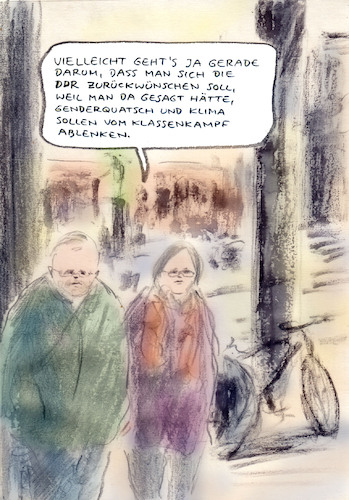 VIELLEICHT GEHT'S JA GERADE
DARUM, DASS MAN SICH DIE
DDR ZURÜCKWÜNSCHEN SOLL,
WEIL MAN DA GESAGT HÄTTE,
GENDERQUATSCH UND KLIMA
SOLLEN VOM KLASSENKAMPF
ABLENKEN.